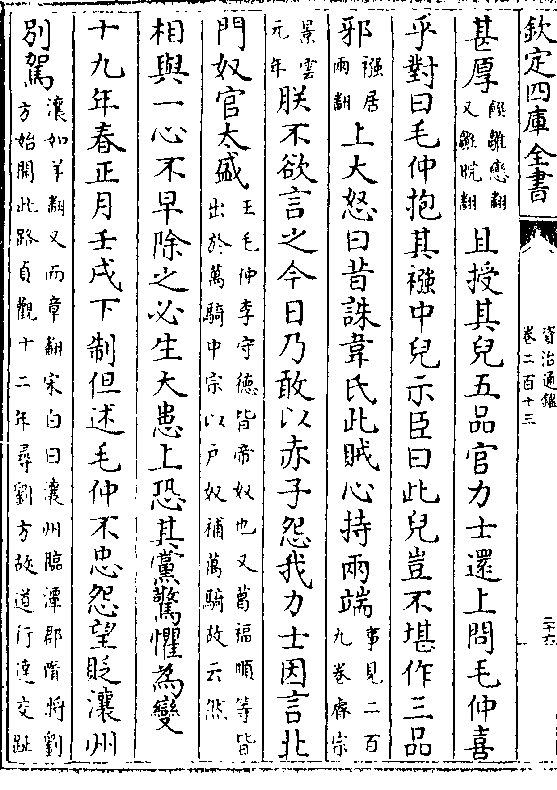 欽定四庫全書
資治通鑑
卷二百十三
二十六
甚厚
餼雛戀翻
又雛晥翻
且授其兒五品官力士還上問毛仲喜
乎對曰毛仲抱其襁中兒示臣曰此兒豈不堪作三品
邪
襁居
兩翻
上大怒曰昔誅韋氏此賊心持兩端
事見二百
九卷睿宗
景雲
元年
朕不欲言之今日乃敢以赤子怨我力士因言北
門奴官太盛
王毛仲李守德皆帝奴也又葛福順等皆
出於萬騎中宗以戶奴補萬騎故云然
相與一心不早除之必生大患上恐其黨驚懼為變
十九年春正月壬戌下制但述毛仲不忠怨望貶瀼州
別駕
瀼如羊翻又而章翻宋白曰瀼州臨潭郡隋將劉
方始開此路貞觀十二年尋劉方故道行達交趾